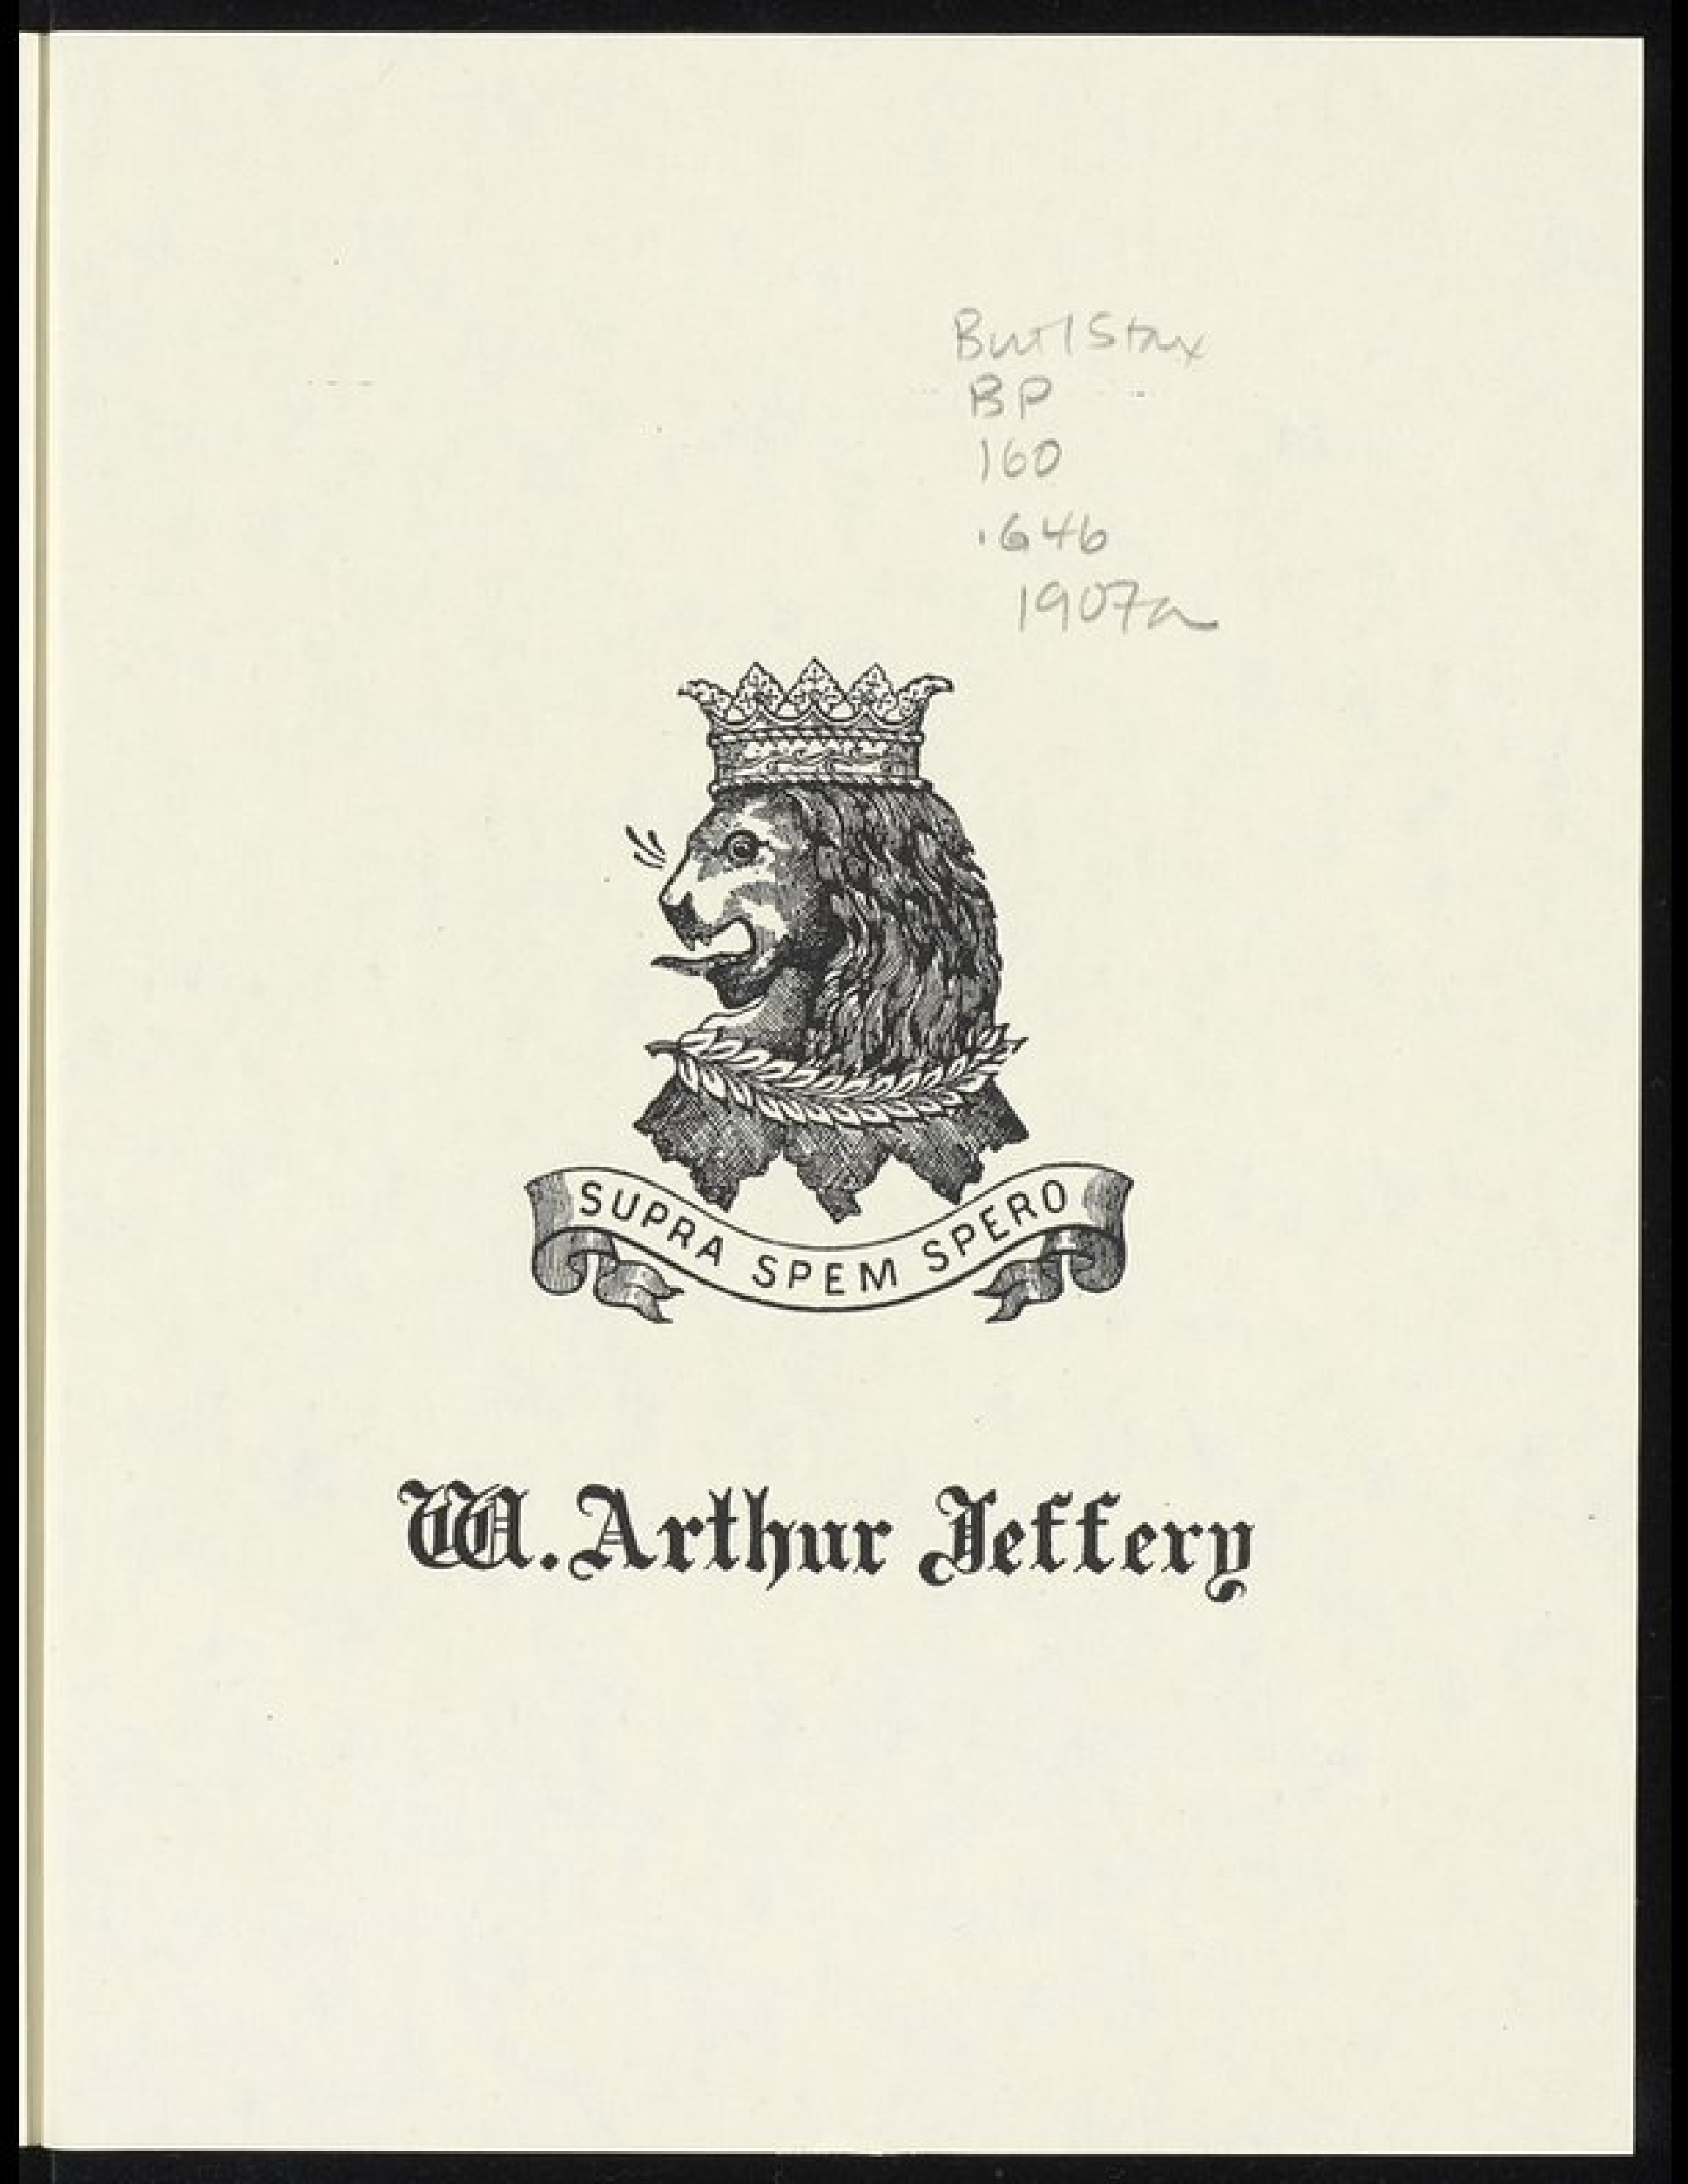 Butl Stax
BP
160
.G46
1907a
SUPRA SPEM SPERO
W. Arthur Jeffery